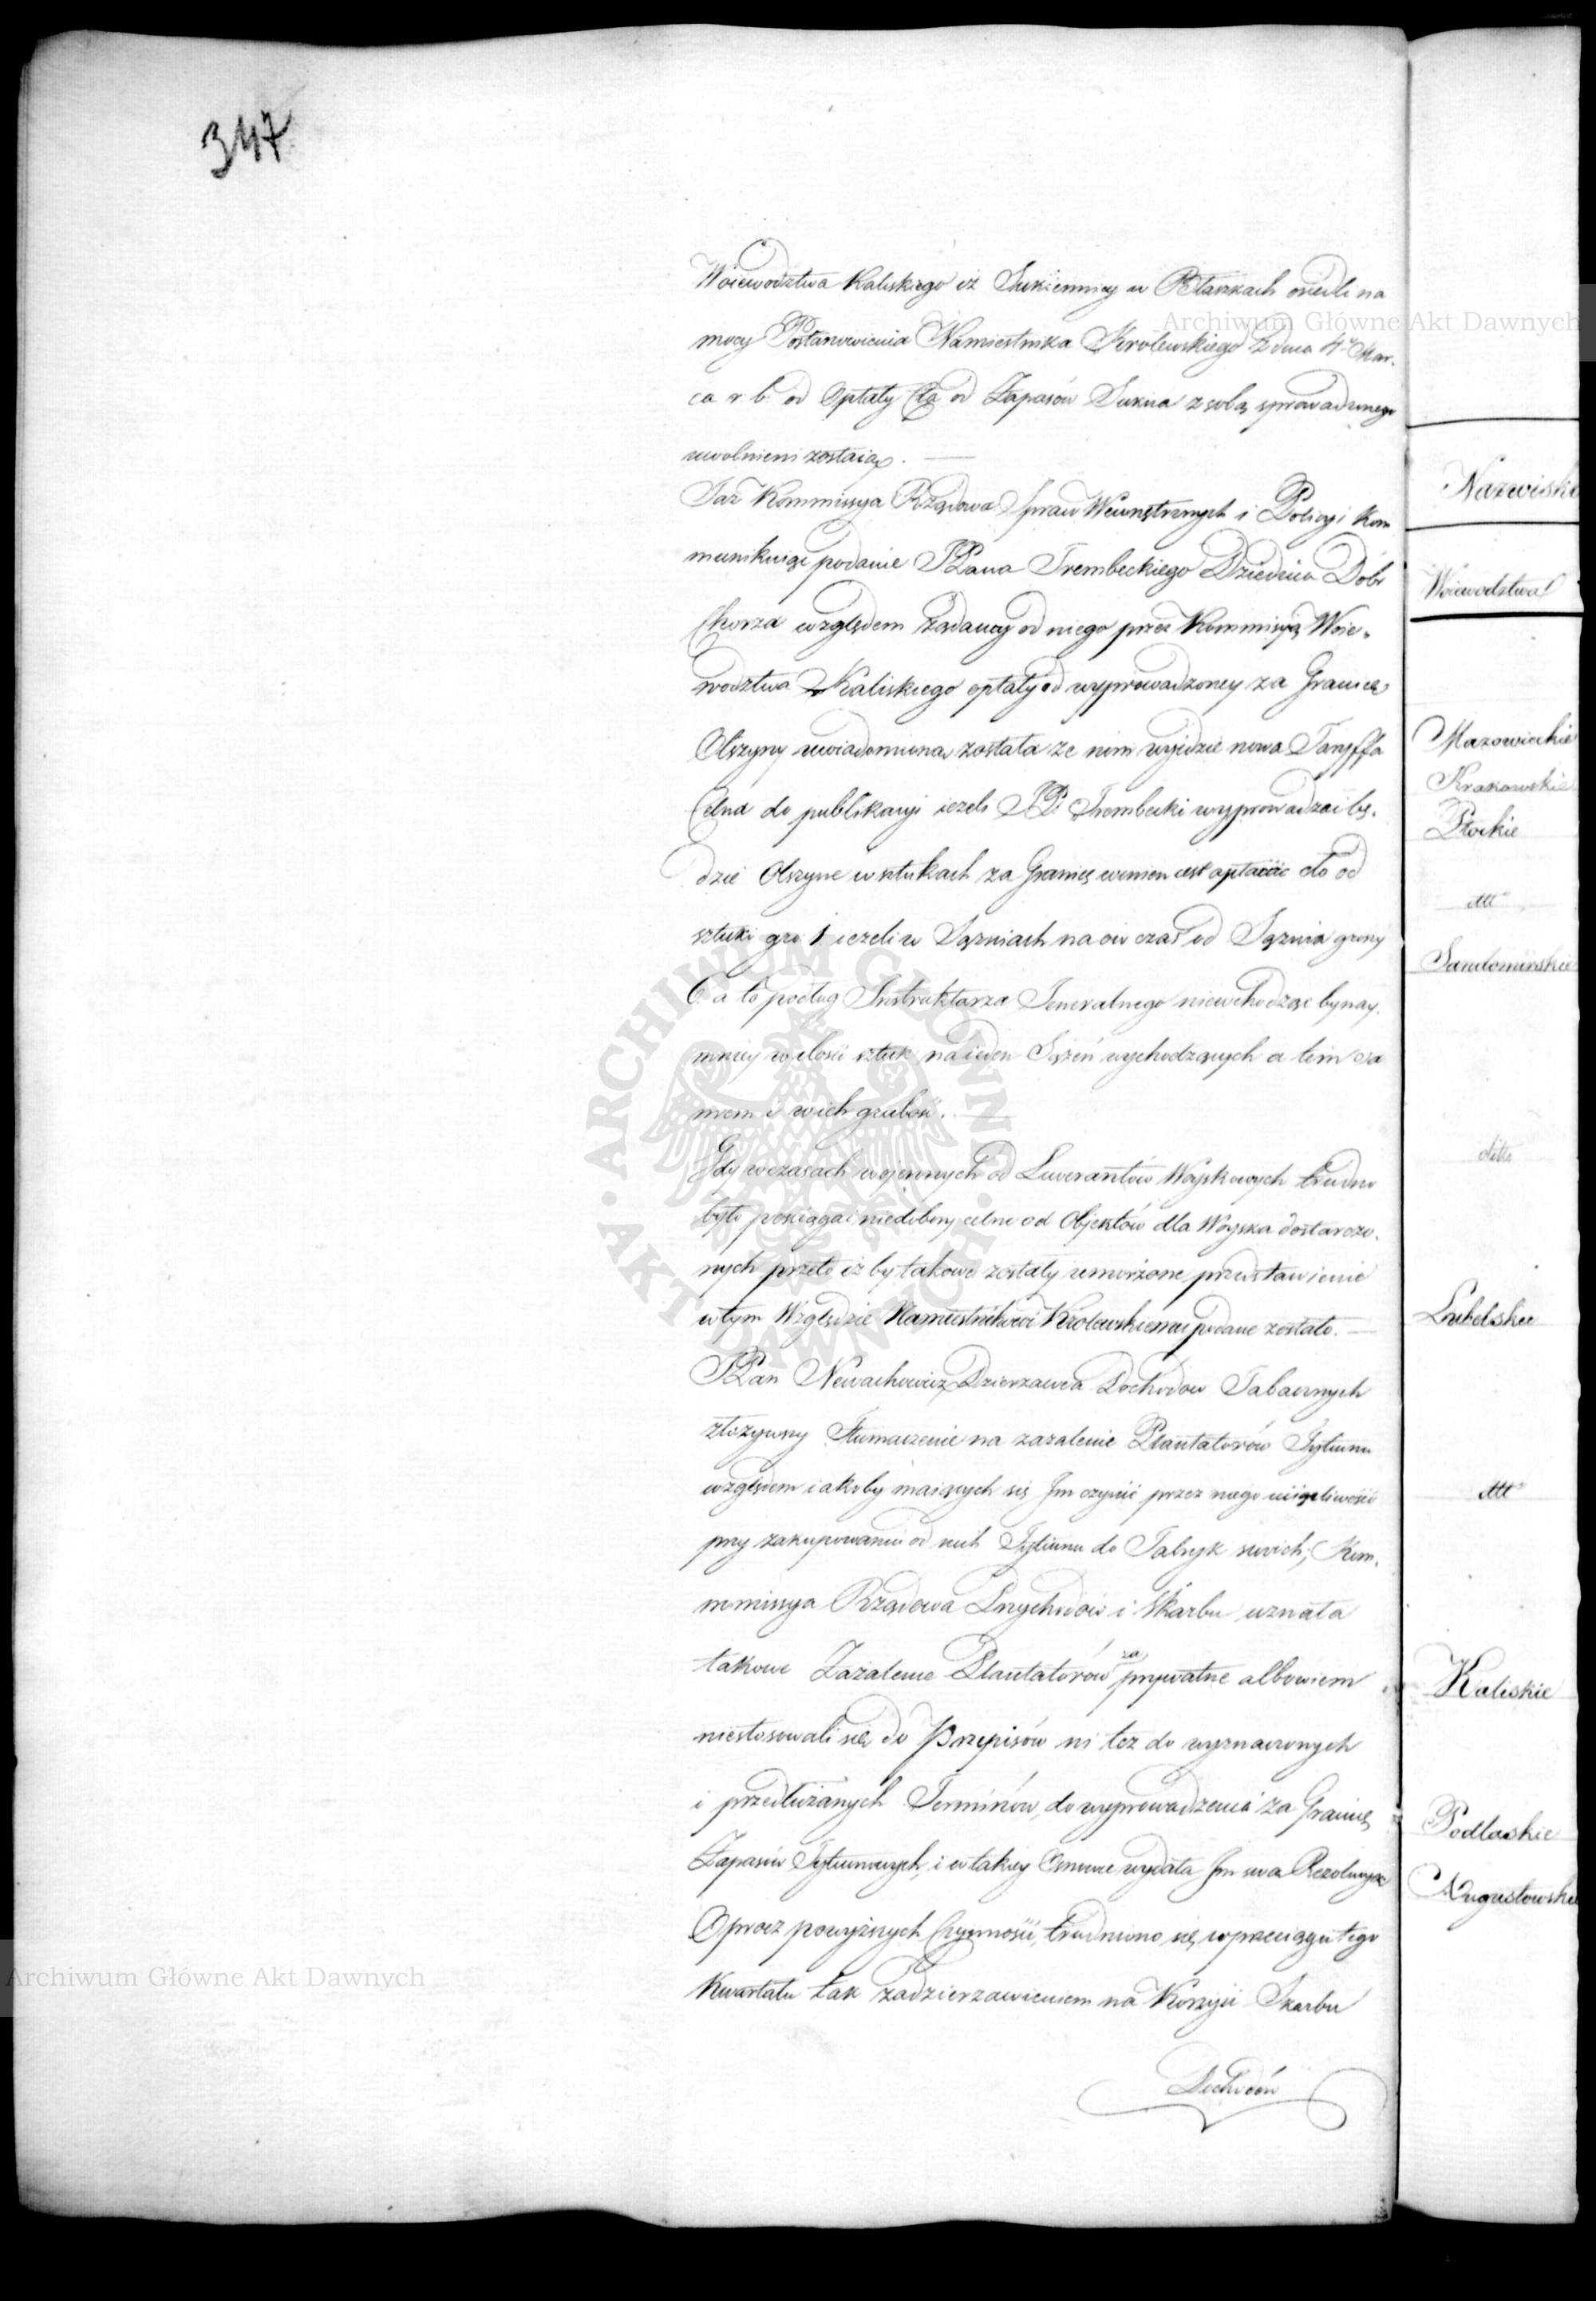 347
Woiewodztwa Kaliskiego iż Sukiennicy w Pstaszkach osiedli na
mocy Postanowienia Namiestnika Krolewskiego z dnia 4 Mar-
ca r. b. od Opłaty Cła od Zapasów Sukna z sobą sprowadzonego
uwolnieni zostaią. —
Taż Kommissya Rządowa Spraw Wewnętrznych i Policyi kom
munikuiąc podanie JPana Trembeckiego Dziedzica Dóbr
Chorza względem żądaney od niego przez Kommissyą Woie-
wodztwa Kaliskiego opłaty od wyprowadzoney za Granicę
Olszyny uwiadomiona została że nim wyjdzie nowa Taryffa
Celna do publikacyi ieżeli JP. Trembecki wyprowadzać bę-
dzie Olszynę w sztukach za Granicę winien iest opłacić cło od
sztuki gro. 1 ieżeli w Sążniach na ow czas od Sążnia groszy
6. a to podług Instruktarza Jeneralnego niewchodząc bynay-
mniey w ilość sztuk na ieden Sążeń wychodzących a tem sa
mem i w ich grubość. —
Gdy w czasach wojennych od Liwerantów Woyskowych trudno
było pościągać niedobory celne od Objektów dla Woyska dostarczo-
nych przeto iż by takowe zostały umorzone przedstawienie
w tym Względzie Namiestnikowi Krolewskiemu podane zostało. —
JPan Newachowicz Dzierzawca Dochodow Tabacznych
złożywszy Tłumaczenie na zażalenie Plantatorów Tytiunu
względem iakoby maiących się Im czynić przez niego uciążliwość
przy zakupowaniu od nich Tytiunu do Fabryk swoich, Kom-
missya Rządowa Przychodów i Skarbu uznała
takowe Zażalenie Plantatorów za prywatne albowiem
niestosowali się do Przepisów ni też do wyznaczonych
i przedłużanych Terminów, do wyprowadzenia za Granicę
Zapasów Tytiunowych, i w takiey Osnowie wydała Im swą Rezolucyą
Oprocz powyższych Czynności, trudniono się w przeciągu tego
Kwartału tak zadzierzawieniem na Korzyść Skarbu
Dochodów
Nazwisko
Woiewodztwa
Mazowieckie
Krakowskie
Płockie
ditto
Sandomirskie
ditto
Lubelskie
ditto
Kaliskie
Podlaskie
Augustowskie
Archiwum Główne Akt Dawnych
Archiwum Główne Akt Dawnych
ARCHIWUM GŁÓWNE AKT DAWNYCH